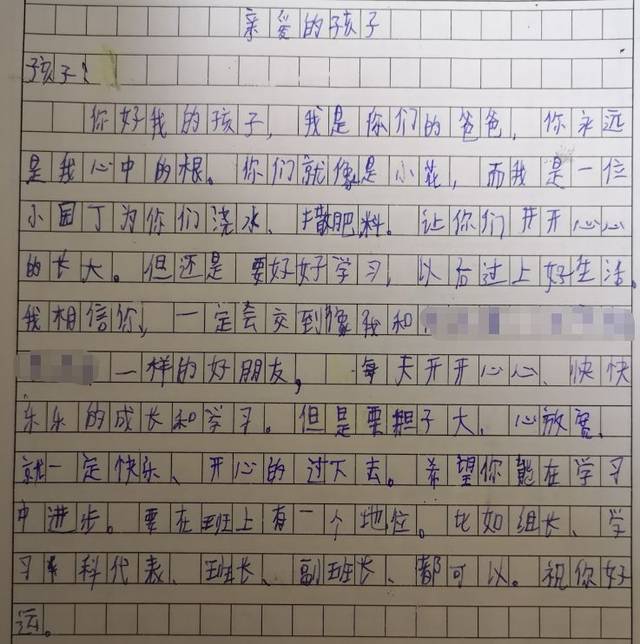 亲爱的孩子
孩子：
你好我的孩子，我是你们的爸爸，你永远
是我心中的根。你们就像是小花，而我是一位
小园丁为你们浇水、撒肥料。让你们开开心心
的长大。但还是要好好学习，以后过上好生活。
我相信你，一定会交到像我和
一样的好朋友，每天开开心心、快快
乐乐的成长和学习。但是要胆子大，心放宽，
就一定快乐、开心的过下去。希望你能在学习
中进步。要在班上有一个地位。比如组长、学
习科代表、班长、副班长、都可以。祝你好
运。